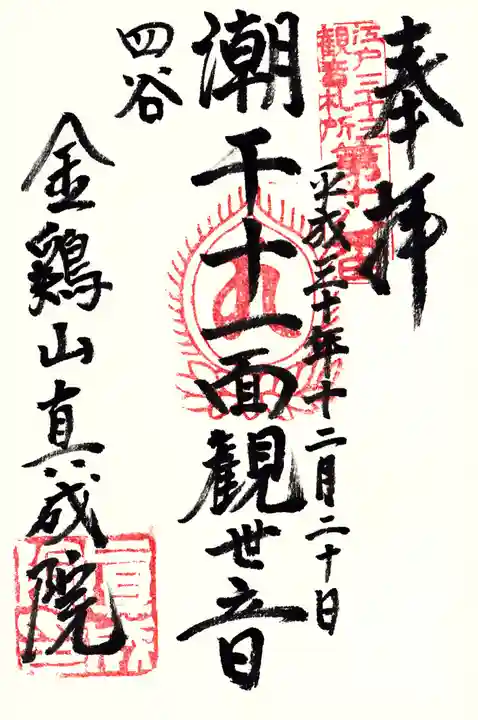 奉拝
江戸三十三
観音札所
平成三十年十二月二十日
潮干十一面観世音
四谷
金鶏山真成院